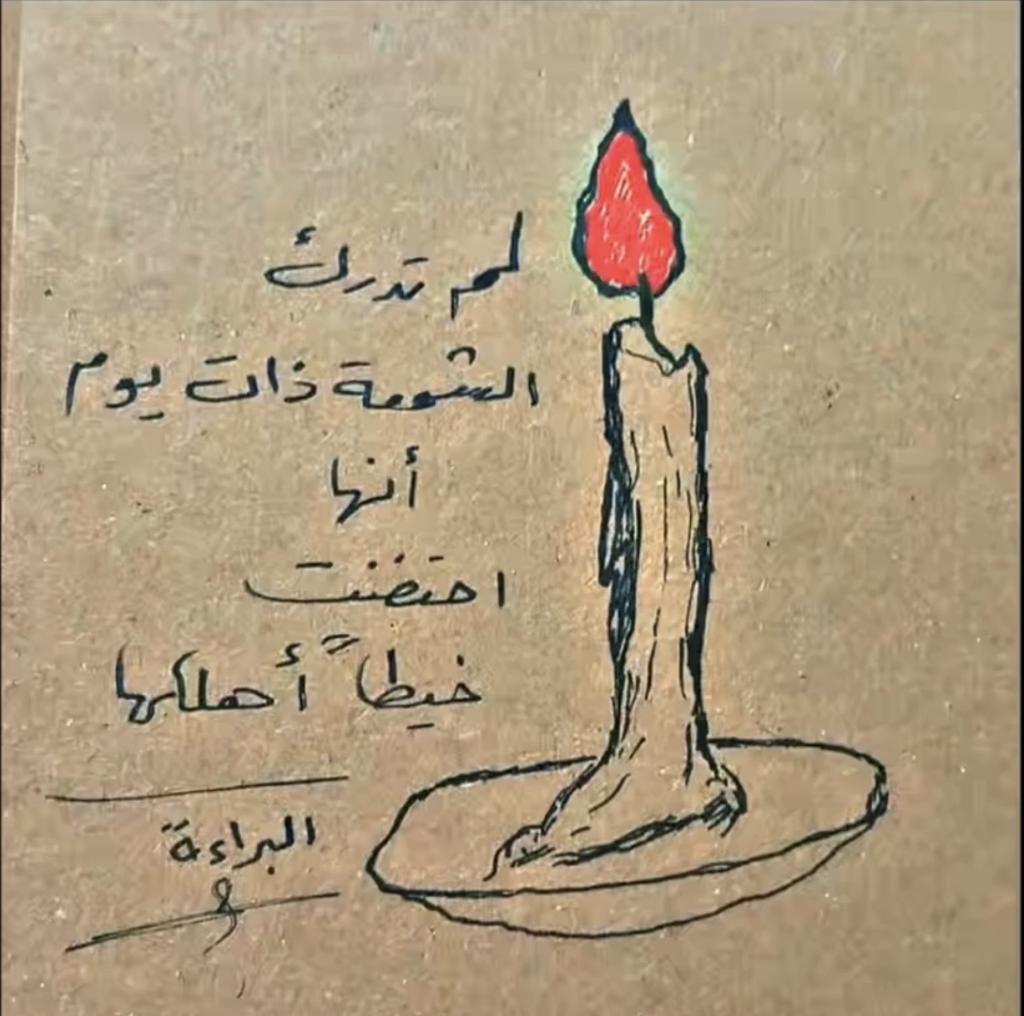 لم تدرك
الشمعة ذات يوم
أنها
احتضنت
خيطاً أهلكها
البراءة